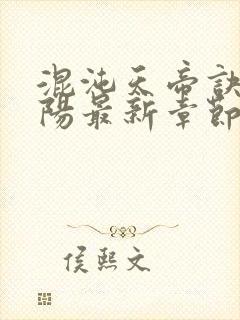 混沌天帝诀
阳最新章節
侯熙文